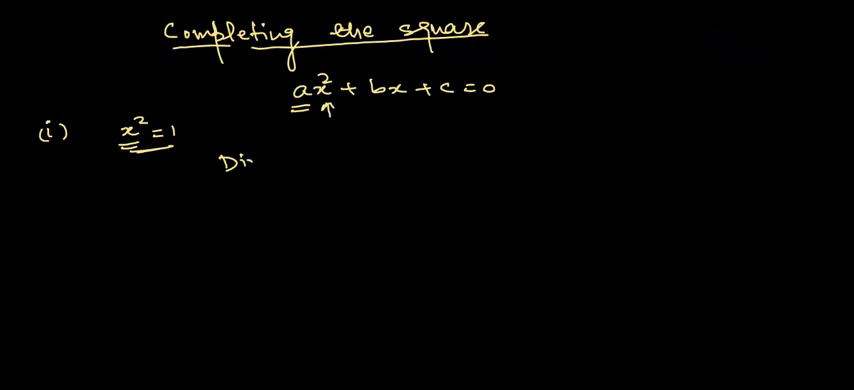 Completing the square
ax² + bx + c = 0
(i) x² = 1
Di